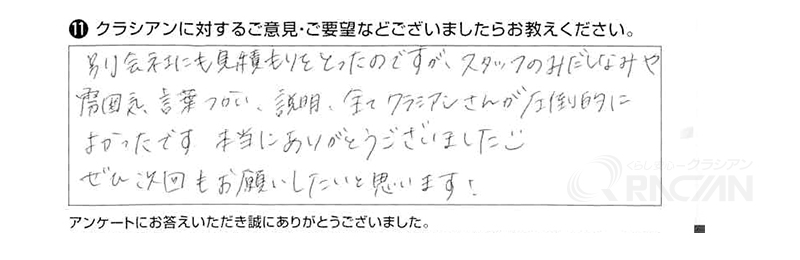 ⓫ クラシアンに対するご意見・ご要望などございましたらお教えください。
別会社にも見積もりをとったのですが、スタッフのみだしなみや
雰囲気、言葉づかい、説明、全てクラシアンさんが圧倒的に
よかったです 本当にありがとうございました☺
ぜひ次回もお願いしたいと思います!
くらし安心クラシアン
QRACIAN
アンケートにお答えいただき誠にありがとうございました。